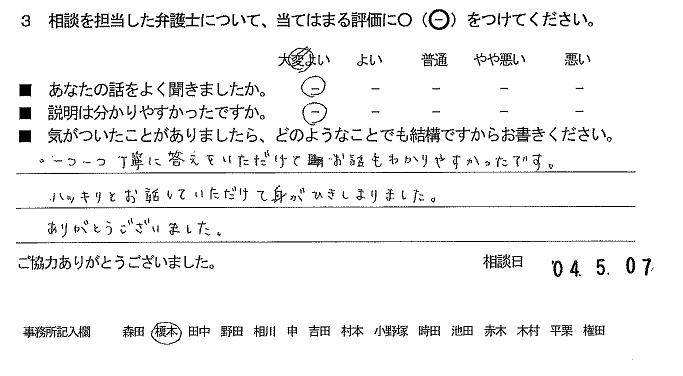 3 相談を担当した弁護士について、当てはまる評価に○（⊖）をつけてください。
大変よい よい 普通 やや悪い 悪い
■ あなたの話をよく聞きましたか。 － － － － －
■ 説明は分かりやすかったですか。 － － － － －
■ 気がついたことがありましたら、どのようなことでも結構ですからお書きください。
・一つ一つ丁寧に答えをいただけてお話もわかりやすかったです。
ハッキリとお話していただけて身がひきしまりました。
ありがとうございました。
ご協力ありがとうございました。 相談日 '04.5.07
事務所記入欄 森田 榎本 田中 野田 相川 申 吉田 村本 小野塚 時田 池田 赤木 木村 平栗 権田